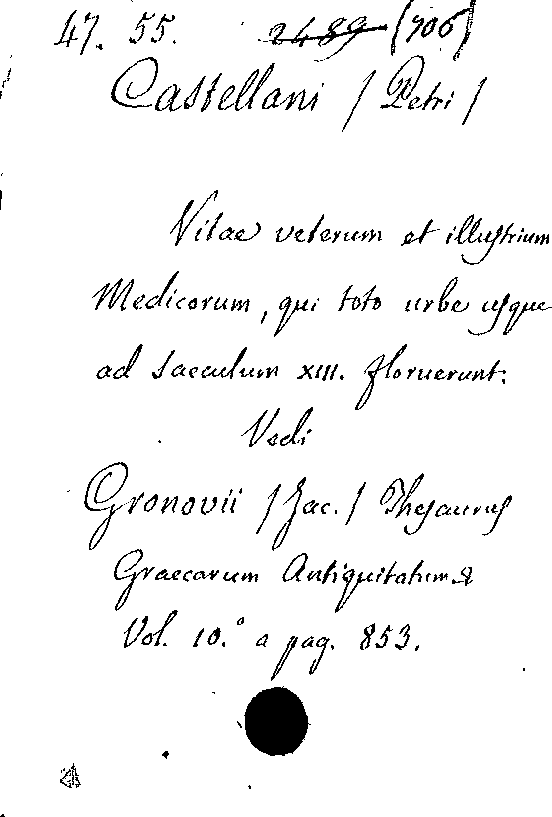 47. 55. 2489 (706)
Castellani / Petri /
Vitae veterum et illustrium
Medicorum, qui toto urbe usque
ad saeculum XIII. floruerunt.
Vedi
Gronovii / Jac. / Thesaurus
Graecarum Antiquitatum &
Vol. 10.° a pag. 853.